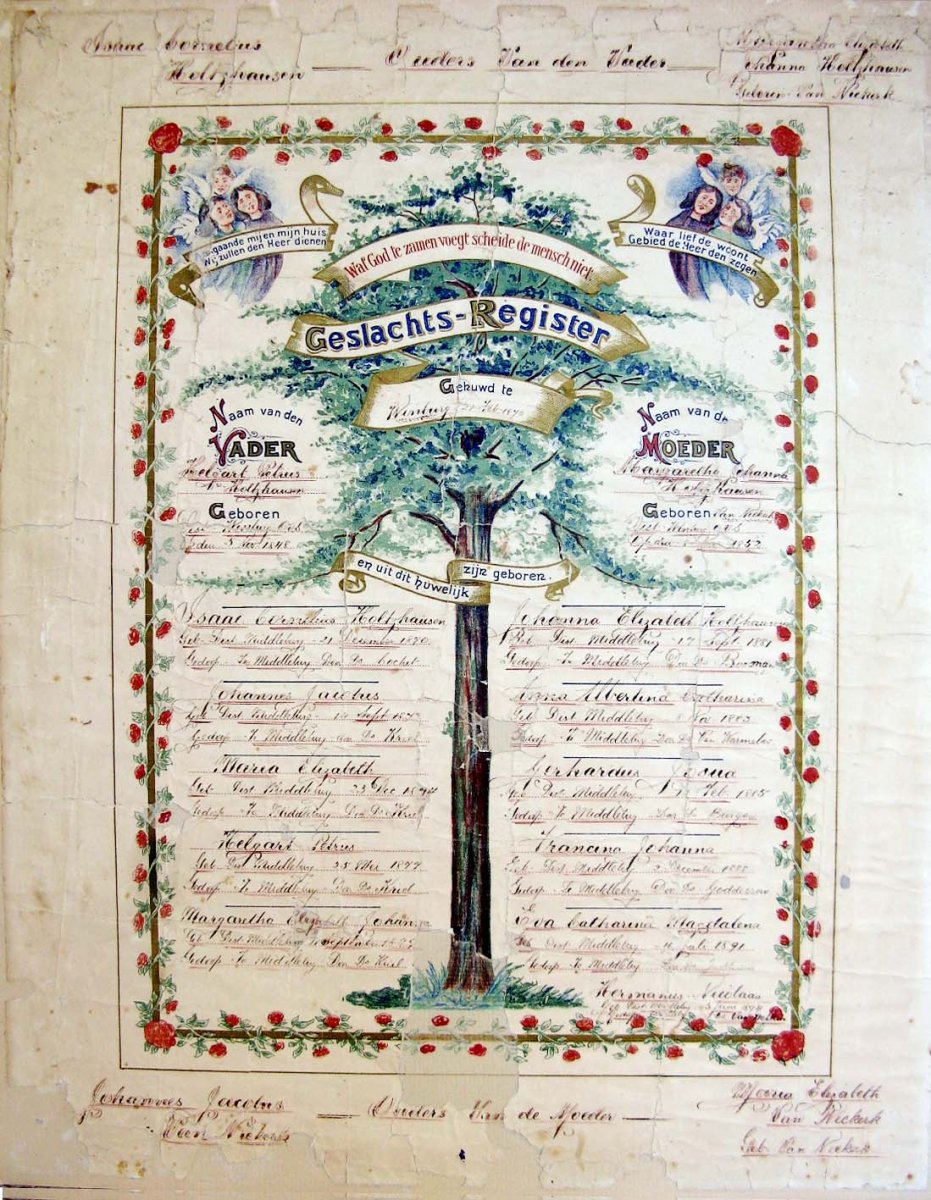 Isaac Cornelus
Holtzhausen
Ouders Van den Vader
Margaretha Elizabeth
Johanna Holtzhausen
Geboren Van Niekerk
mij en mijn huis
Wij zullen den Heer dienen
Waar liefde woont
Gebied de Heer den zegen
Wat God te zamen voegt scheide de mensch niet.
Geslachts-Register
Gehuwd te
Winburg Feb 1870
Naam van den
VADER
Helgart Petrus
Holtzhausen
Geboren
Dist Winburg O.V.S
Nov 1848
Naam van de
MOEDER
Margaretha Johanna
Holtzhausen
Geboren Van Niekerk
Dist Winburg O.V.S
1852
en uit dit huwelijk
zijn geboren.
Isaac Cornelius Holtzhausen
Geb Dist Middleburg - 21 December 1870
Gedoop - Te Middleburg Den Ds Lochet
Johannes Jacobus
Geb Dist Middleburg - 14 Sept 1872
Gedoop - Te Middleburg den Ds Kriel
Maria Elizabeth
Geb Dist Middleburg 23 Dec
Gedoop - Te Middleburg Den Ds Kriel
Helgart Petrus
Geb Dist Middleburg 25 Mei 1877
Gedoop - Te Middleburg Den Ds Kriel
Margaretha Elizabeth Johanna
Geb Dist Middleburg September
Gedoop - Te Middleburg Den Ds Kriel
Johanna Elizabeth Holtzhausen
Geb Dist Middleburg - 17 Sept 1881
Gedoop - Te Middleburg Den Ds Bosman
Anna Albertina Catharina
Geb Dist Middleburg Nov 1883
Gedoop - Te Middleburg Den Ds Van Warmelo
Gerhardus Josua
Geb Dist Middleburg Feb 1885
Gedoop - Te Middleburg Ds Burger
Francina Johanna
Geb Dist Middleburg 3 December 1888
Gedoop - Te Middleburg Den Ds Goddefroy
Eva Catharina Magdalena
Geb Dist Middleburg - Juli 1891
Gedoop - Te Middleburg
Hermanus Nicolaas
Geb Dist Middleburg Juni
Gedoop
Johannes Jacobus
Van Niekerk
Ouders Van de Moeder
Maria Elizabeth
Van Niekerk
Geb Van Niekerk